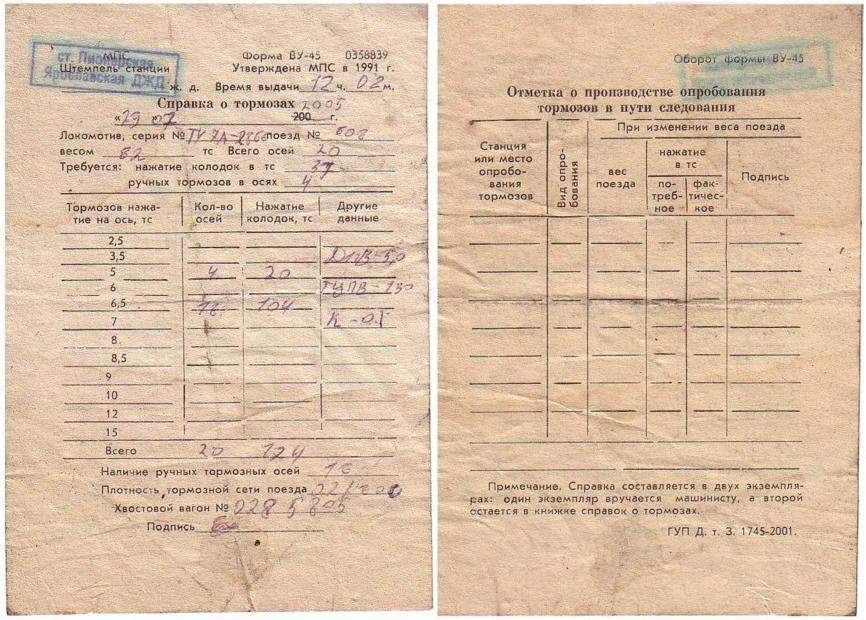 МПС Форма ВУ-45 0358839
Штемпель станции Утверждена МПС в 1991 г.
ст. Пионерская
Ярославская ДЖД
ж. д. Время выдачи 12 ч. 02 м.
Справка о тормозах 2005
"29 07 200 г.
Локомотив, серия № ТУ 2А- поезд № 608
весом 82 тс Всего осей 20
Требуется: нажатие колодок в тс
ручных тормозов в осях 4
Тормозов нажатие на ось, тс Кол-во осей Нажатие колодок, тс Другие данные
2,5
3,5
5 4 20
6
6,5 16 104
7
8
8,5
9
10
12
15
Всего 20 124
Наличие ручных тормозных осей 16
Плотность тормозной сети поезда
Хвостовой вагон №
Подпись
Оборот формы ВУ-45
Отметка о производстве опробования
тормозов в пути следования
Станция или место опробования тормозов Вид опробования При изменении веса поезда
вес поезда нажатие в тс Подпись
потребное фактическое
Примечание. Справка составляется в двух экземпля-
рах: один экземпляр вручается машинисту, а второй
остается в книжке справок о тормозах.
ГУП Д. т. З. 1745-2001.